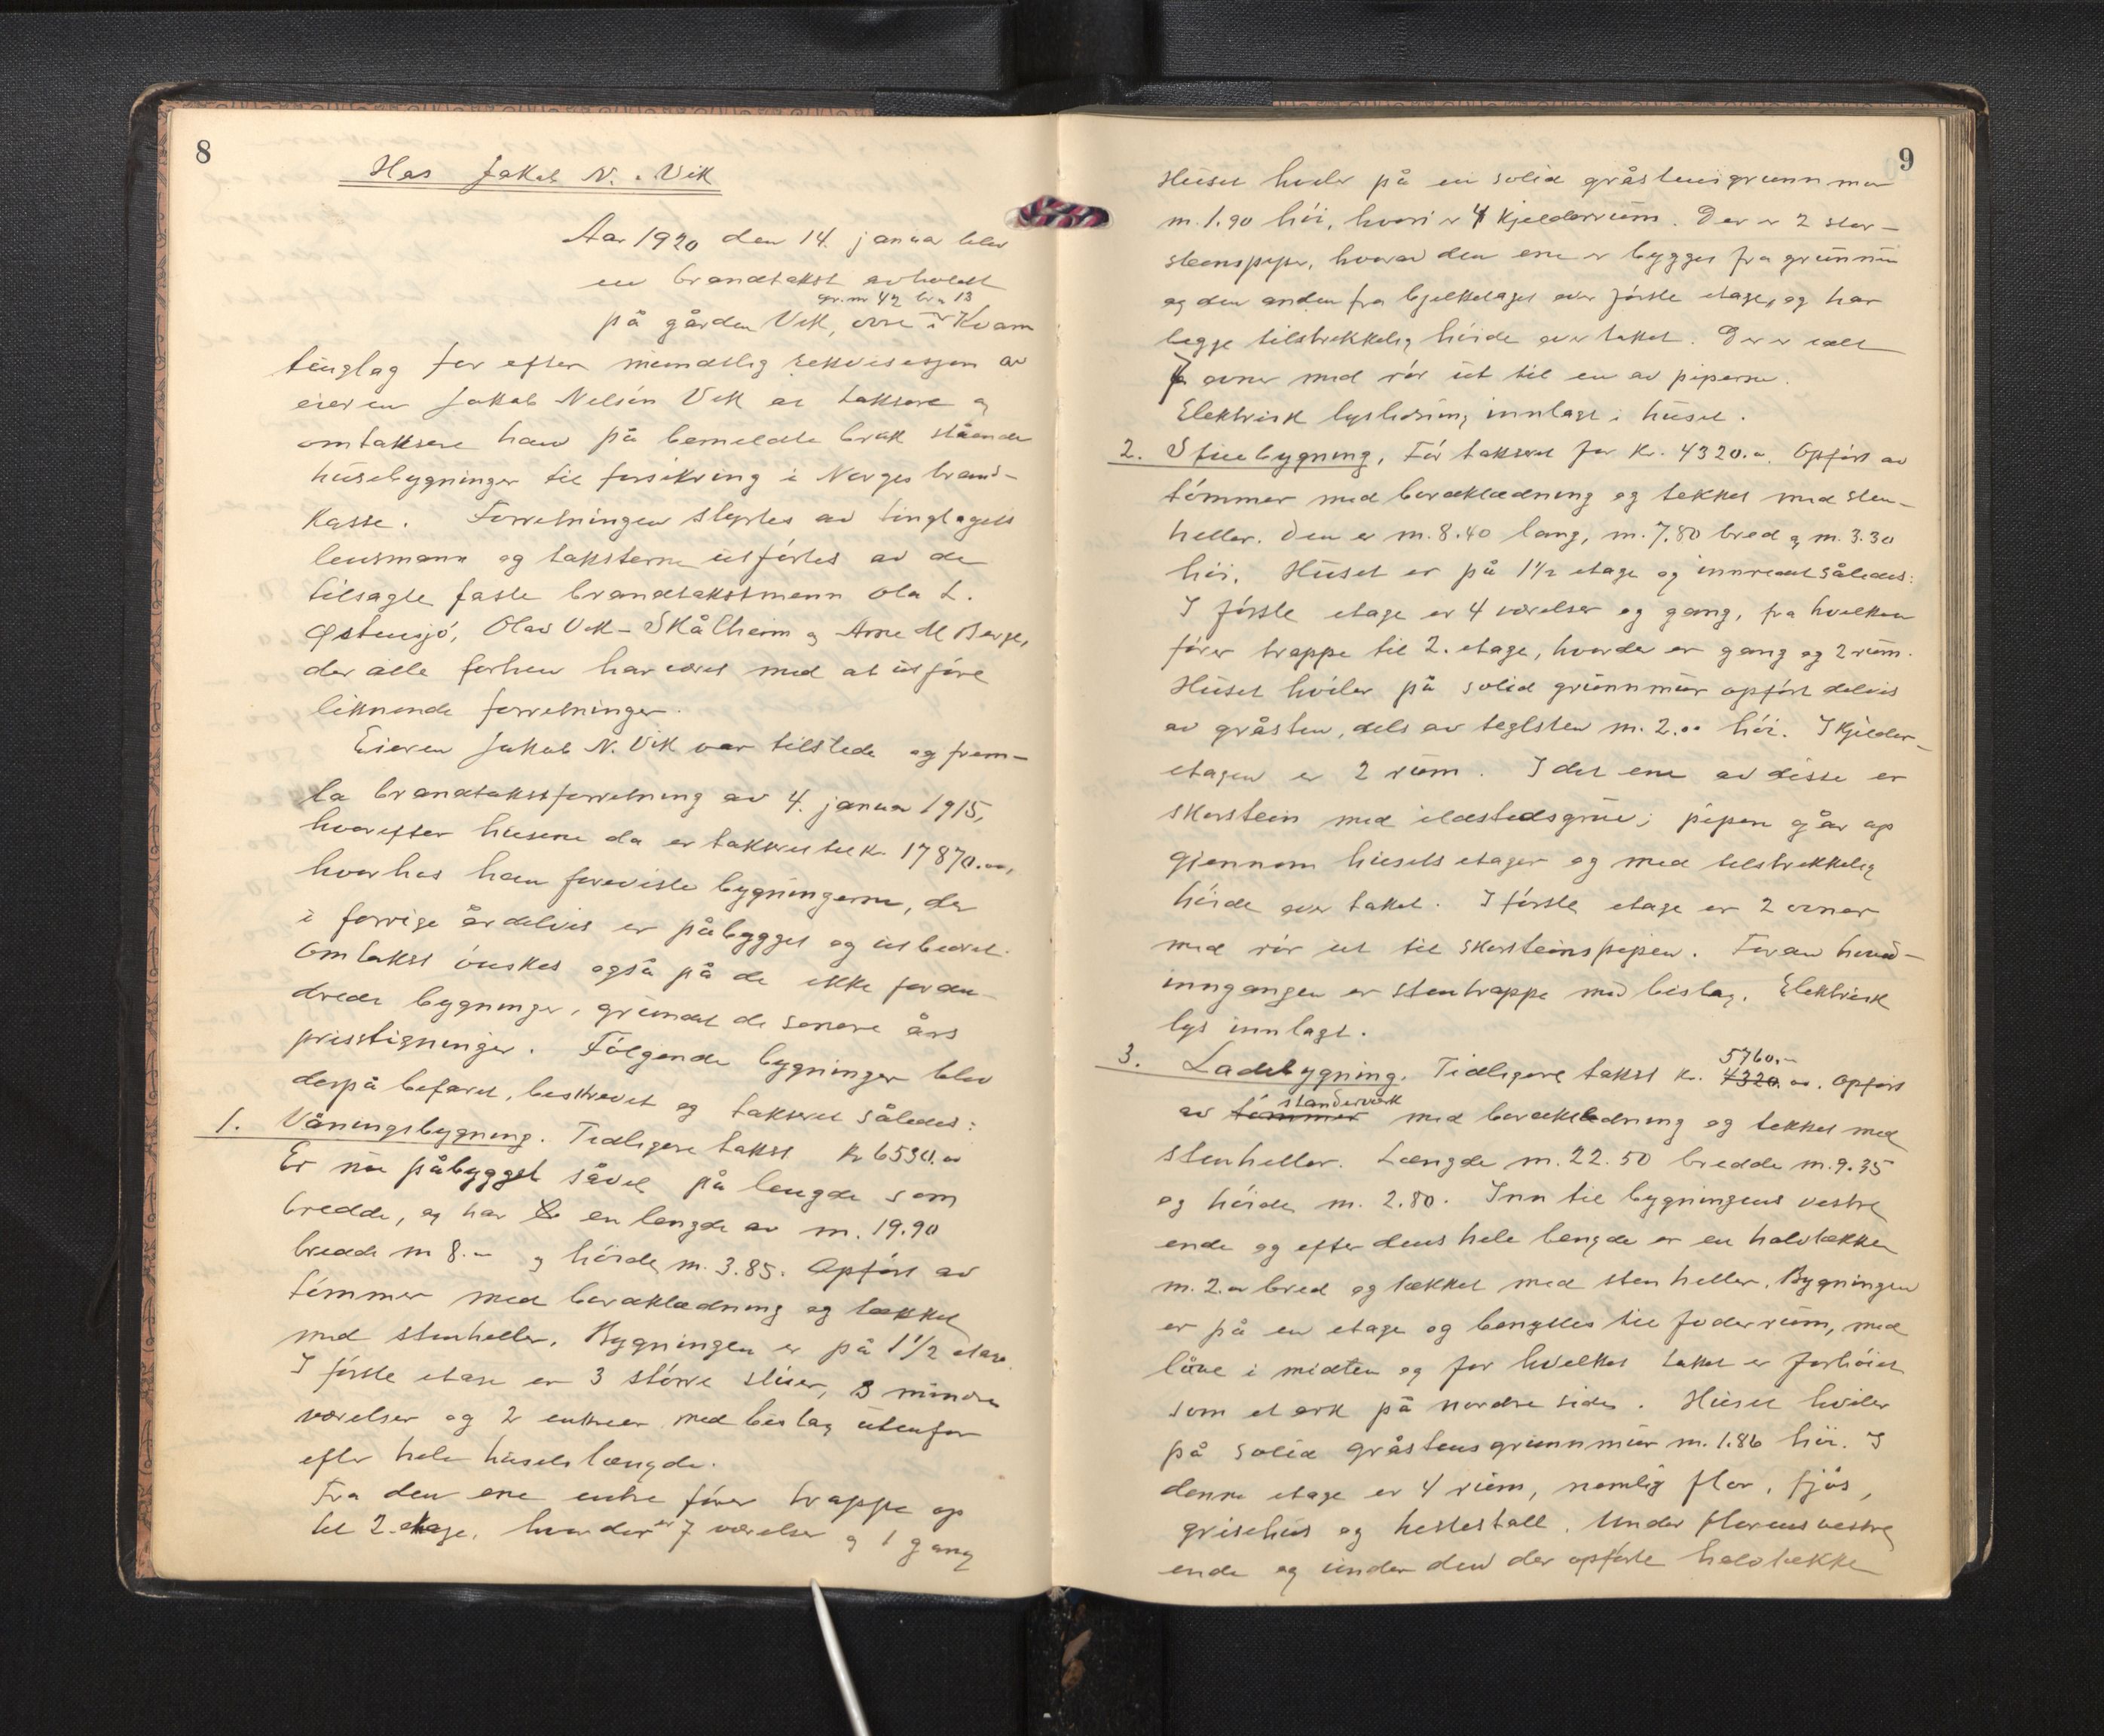 8
Hos Jakob N. Vik
Aar 1920 den 14. januar blev
en brandtakst avholdt
gr.nr 42 br.n 13
på gården Vik, øvre i Kvam
tinglag for efter mundtlig rekvisisjon av
eieren Jakob Nelson Vik at taksere og
omtaksere hans på bemeldte bruk stående
husebygninger til forsikring i Norges brand-
kasse. Forretningen styrtes av tinglagets
lensmann og taksterne utførtes av de
tilsagte faste brandtakstmenn Ola L.
Østensjø, Olav Vik-Skålheim og Arne M Berge,
der alle forhen har været med at utføre
liknende forretninger.
Eieren Jakob N. Vik var tilstede og frem-
la brandtakstforretning av 4. januar 1915,
hvorefter husene da er takseret til kr. 17870.00,
hvorhos han foreviste bygningerne, der
i forrige år delvis er påbygget og utbedret.
Omtakst ønskes også på de ikke foran-
drede bygninger, grundet de senere års
prisstigninger. Følgende bygninger blev
derpå befaret, beskrevet og takseret således:
1. Våningsbygning. Tidligere takst kr 6530.00
Er nu påbygget såvel på lengde som
bredde, og har en lengde av m. 19.90
bredde m 8.- og høide m. 3.85. Opført av
tømmer med bordklædning og tækket
med stenheller. Bygningen er på 1 1/2 etage.
I første etage er 3 større stuer, 3 mindre
værelser og 2 entreer med bislag utenfor
efter hele husets længde.
Fra den ene entre fører trappe op
til 2. etage, hvor der er 7 værelser og 1 gang
9
Huset hviler på en solid gråstensgrunnmur
m. 1.90 høi, hvori er 4 kjelderrum. Der er 2 skor-
steenspiper, hvorav den ene er bygget fra grunnen
og den anden fra bjelkelaget over første etage, og har
begge tilstrekkelig høide over taket. Der er ialt
7 ovner med rør ut til en av piperne.
Elektrisk lysledning innlagt i huset.
2. Stuebygning. Før takseret for kr. 4320.00. Opført av
tømmer med bordklædning og tekket med sten-
heller. Den er m. 8.40 lang, m. 7.80 bred og m. 3.30
høi. Huset er på 1 1/2 etage og innredet således:
I første etage er 4 værelser og gang, fra hvilken
fører trappe til 2. etage, hvor der er gang og 2 rum.
Huset hviler på solid grunnmur opført delvis
av gråsten, dels av teglsten m. 2.00 høi. I kjelder-
etagen er 2 rum. I det ene av disse er
skorstein med ildstedsgrue; pipen går op
gjennom husets etager og med tilstrekkelig
høide over taket. I første etage er 2 ovner
med rør ut til skorsteinspipen. Foran hoved-
inngangen er stentrappe med bislag. Elektrisk
lys innlagt.
5760.-
3. Ladebygning. Tidligere takst kr. 4320.00. Opført
standerverk
av tømmer med bordklædning og tekket med
stenheller. Længde m. 22.50 bredde m. 9.35
og høide m. 2.80. Inn til bygningens vestre
ende og efter dens hele lengde er en halvtække
m. 2.00 bred og tækket med stenheller. Bygningen
er på en etage og benyttes til foderrum, med
låve i midten og for hvilket taket er forhøiet
som et ark på nordre side. Huset hviler
på solid gråstensgrunnmur m. 1.86 høi. I
denne etage er 4 rum, nemlig flor, fjøs,
grisehus og hestestall. Under florens vestre
ende og under den der opførte halvtække